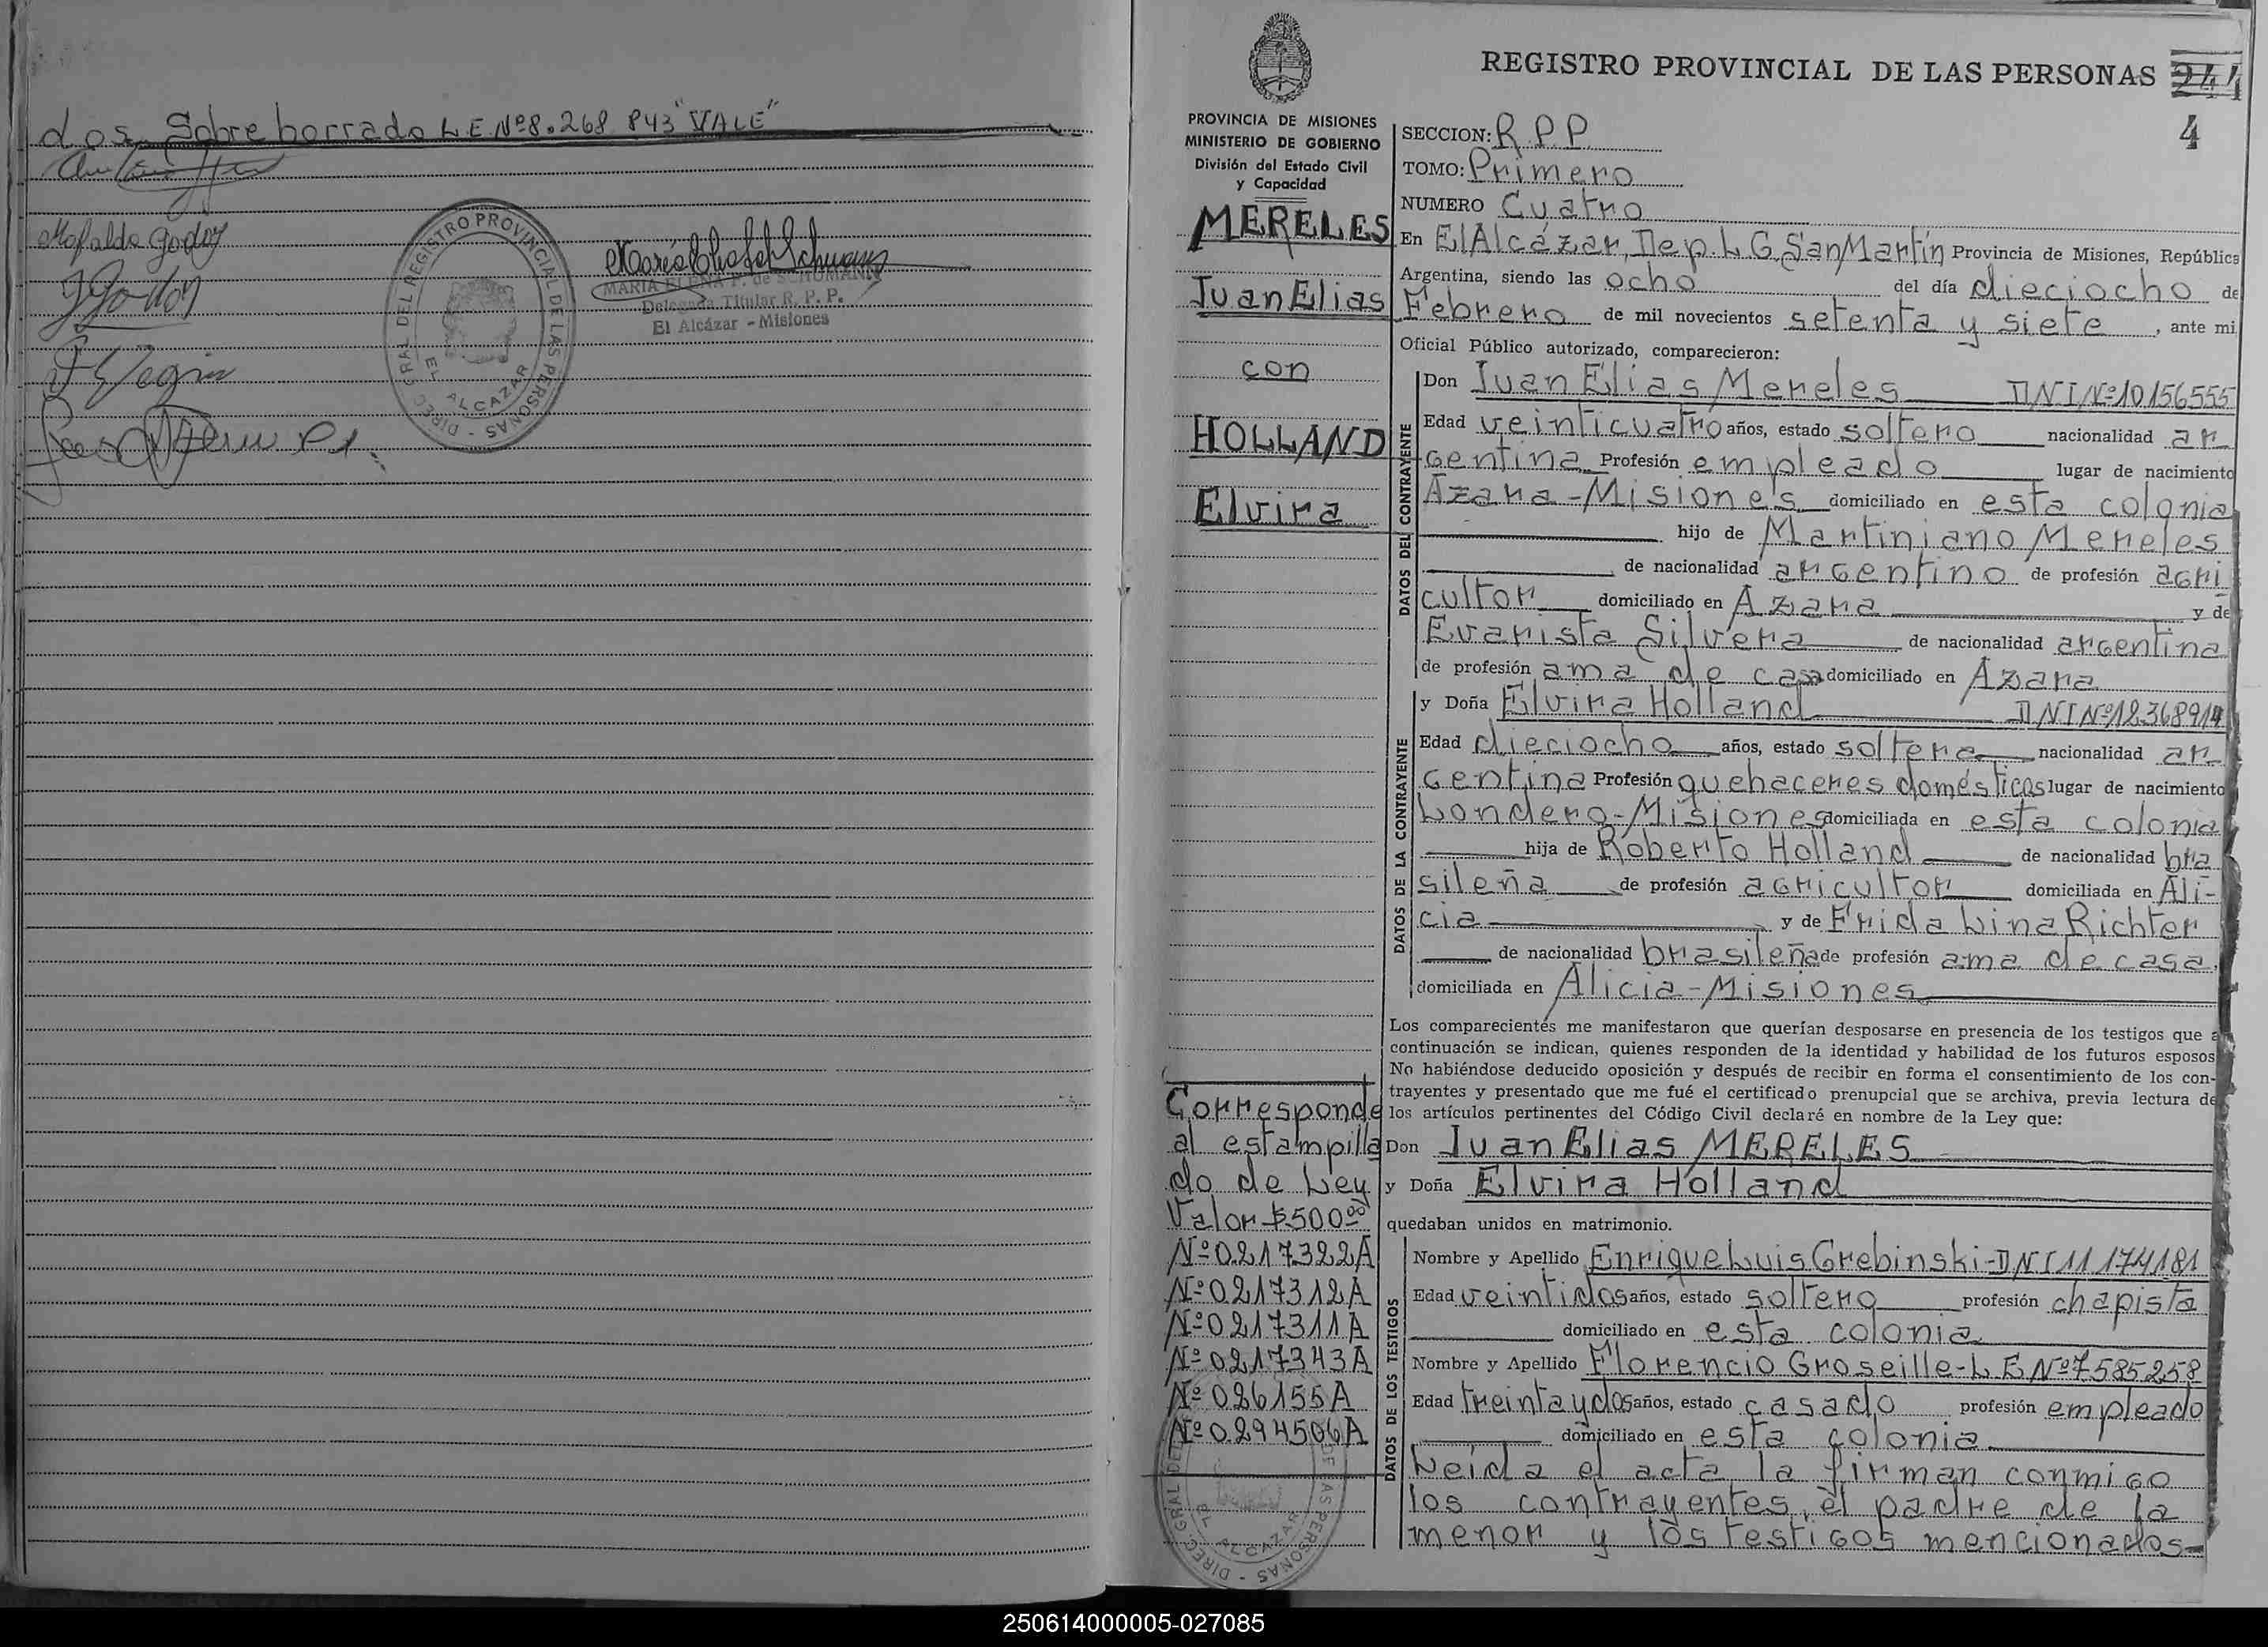 dos. Sobre borrado L E Nº 8.268 843 "VALE"
Mafalda Godoy
JGodoy
MARIA ELENA P. de SCHUMANN
Delegada Titular R. P. P.
El Alcázar - Misiones
DIREC. GRAL DEL REGISTRO PROVINCIAL DE LAS PERSONAS
EL ALCAZAR
REGISTRO PROVINCIAL DE LAS PERSONAS 244
4
PROVINCIA DE MISIONES
MINISTERIO DE GOBIERNO
División del Estado Civil
y Capacidad
MERELES
Juan Elias
con
HOLLAND
Elvira
SECCION: R.P.P.
TOMO: Primero
NUMERO Cuatro
En El Alcázar, Dep. L G San Martín Provincia de Misiones, República
Argentina, siendo las ocho del día dieciocho de
Febrero de mil novecientos setenta y siete, ante mi
Oficial Público autorizado, comparecieron:
DATOS DEL CONTRAYENTE
Don Juan Elias Mereles DNI Nº 10156555
Edad veinticuatro años, estado soltero nacionalidad ar
gentina Profesión empleado lugar de nacimiento
Azara - Misiones domiciliado en esta colonia
hijo de Martiniano Mereles
de nacionalidad argentino de profesión agri
cultor domiciliado en Azara y de
Evarista Silvera de nacionalidad argentina
de profesión ama de casa domiciliado en Azara
DATOS DE LA CONTRAYENTE
y Doña Elvira Holland DNI Nº 12368914
Edad dieciocho años, estado soltera nacionalidad ar
gentina Profesión quehaceres domésticos lugar de nacimiento
Londero - Misiones domiciliada en esta colonia
hija de Roberto Holland de nacionalidad bra
sileña de profesión agricultor domiciliada en Ali-
cia y de Frida Lina Richter
de nacionalidad brasileña de profesión ama de casa,
domiciliada en Alicia - Misiones
Los comparecientes me manifestaron que querían desposarse en presencia de los testigos que a
continuación se indican, quienes responden de la identidad y habilidad de los futuros esposos
No habiéndose deducido oposición y después de recibir en forma el consentimiento de los con-
trayentes y presentado que me fué el certificado prenupcial que se archiva, previa lectura de
los artículos pertinentes del Código Civil declaré en nombre de la Ley que:
Don Juan Elias MERELES
y Doña Elvira Holland
quedaban unidos en matrimonio.
Corresponde
al estampilla
do de Ley
Valor $ 500.00
Nº 0217322A
Nº 0217312A
Nº 0217311A
Nº 0217343A
Nº 026155A
Nº 0294506A
DIREC. GRAL DEL
DE LAS PERSONAS
EL ALCAZAR
DATOS DE LOS TESTIGOS
Nombre y Apellido Enrique Luis Grebinski - DNI 11 174181
Edad veintidos años, estado soltero profesión chapista
domiciliado en esta colonia
Nombre y Apellido Florencio Groseille - L E Nº 7585258
Edad treinta y dos años, estado casado profesión empleado
domiciliado en esta colonia
Leida el acta la firman conmigo
los contrayentes, el padre de la
menor y los testigos mencionados-
250614000005-027085